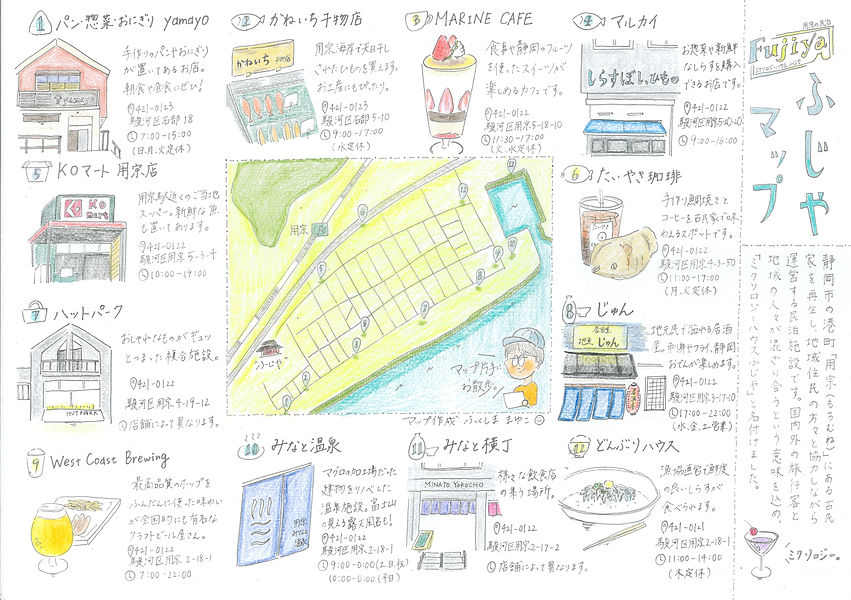 1 パン・惣菜・おにぎり yamayo
手作りのパンやおにぎり
が置いてあるお店。
朝食や昼食にぜひ!
〒421-0123
駿河区石部18
7:00-15:00
(日、月、火定休)
2 かねいち干物店
かねいち 干物店
用宗海岸で天日干し
されたひものを買えます。
お土産にもぴったり。
〒421-0123
駿河区石部5-10
9:00-17:00
(水定休)
3 MARINE CAFE
食事や静岡のフルーツ
を使ったスイーツが
楽しめるカフェです。
〒421-0122
駿河区用宗5-18-10
11:30-17:00
(火、水定休)
4 マルカイ
しらすぼし、ひもの
お惣菜や新鮮
なしらすを購入
できるお店です。
〒421-0122
駿河区用宗5-20-20
9:00-16:00
用宗の民泊
Fujiya
ふじや
マップ
5 KOマート 用宗店
KO
mart
用宗駅近くのご当地
スーパー。新鮮な魚
も置いてあります。
〒421-0122
駿河区用宗5-3-4
10:00-19:00
用宗
ふじや
マップ片手に
お散歩。
マップ作成 ふくしま まゆこ
6 たいやき珈琲
手作り鯛焼きと
コーヒーを古民家で味
わえるスポットです。
〒421-0122
駿河区用宗4-3-50
11:00-17:00
(月、火定休)
7 ハットパーク
HUTPARK
おしゃれなものがギュッ
とつまった複合施設。
〒421-0122
駿河区用宗4-19-12
店舗によって異なります。
8 じゅん
居酒屋
地魚 じゅん
地元民で溢れる居酒
屋。刺身やフライ、静岡
おでんが楽しめます。
〒421-0122
駿河区用宗3-17-10
17:00-22:00
9 West Coast Brewing
最高品質のホップを
ふんだんに使った味わい
が全国的にも有名な
クラフトビール屋さん。
〒421-0122
駿河区用宗2-18-1
7:00-22:00
10 みなと温泉
用宗
みなと
温泉
マグロの加工場だった
建物をリノベした
温泉施設。富士山
の見える露天風呂も!
〒421-0122
駿河区用宗2-18-1
9:00-0:00(土、日、祝)
10:00-0:00(平日)
11 みなと横丁
MINATO YOKOCHO
様々な飲食店
の集う場所。
〒421-0122
駿河区用宗2-17-2
店舗によって異なります。
12 どんぶりハウス
漁協直営で鮮度
の良いしらすが
食べられます。
〒421-0121
駿河区用宗2-18-1
11:00-14:00
(木定休)
静岡市の港町「用宗(もちむね)」にある古民
家を再生し、地域住民の方々と協力しながら
運営する民泊施設です。国内外の旅行客と
地域の人々が混ざり合うという意味を込め、
「ミクソロジーハウスふじや」と名付けました。
ミクソロジー。